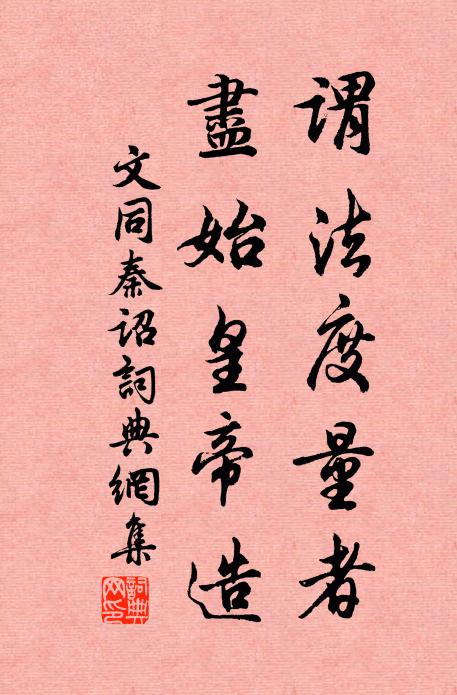 謂法度量者
盡始皇帝造
文同秦詔詞典網集
詞典网印